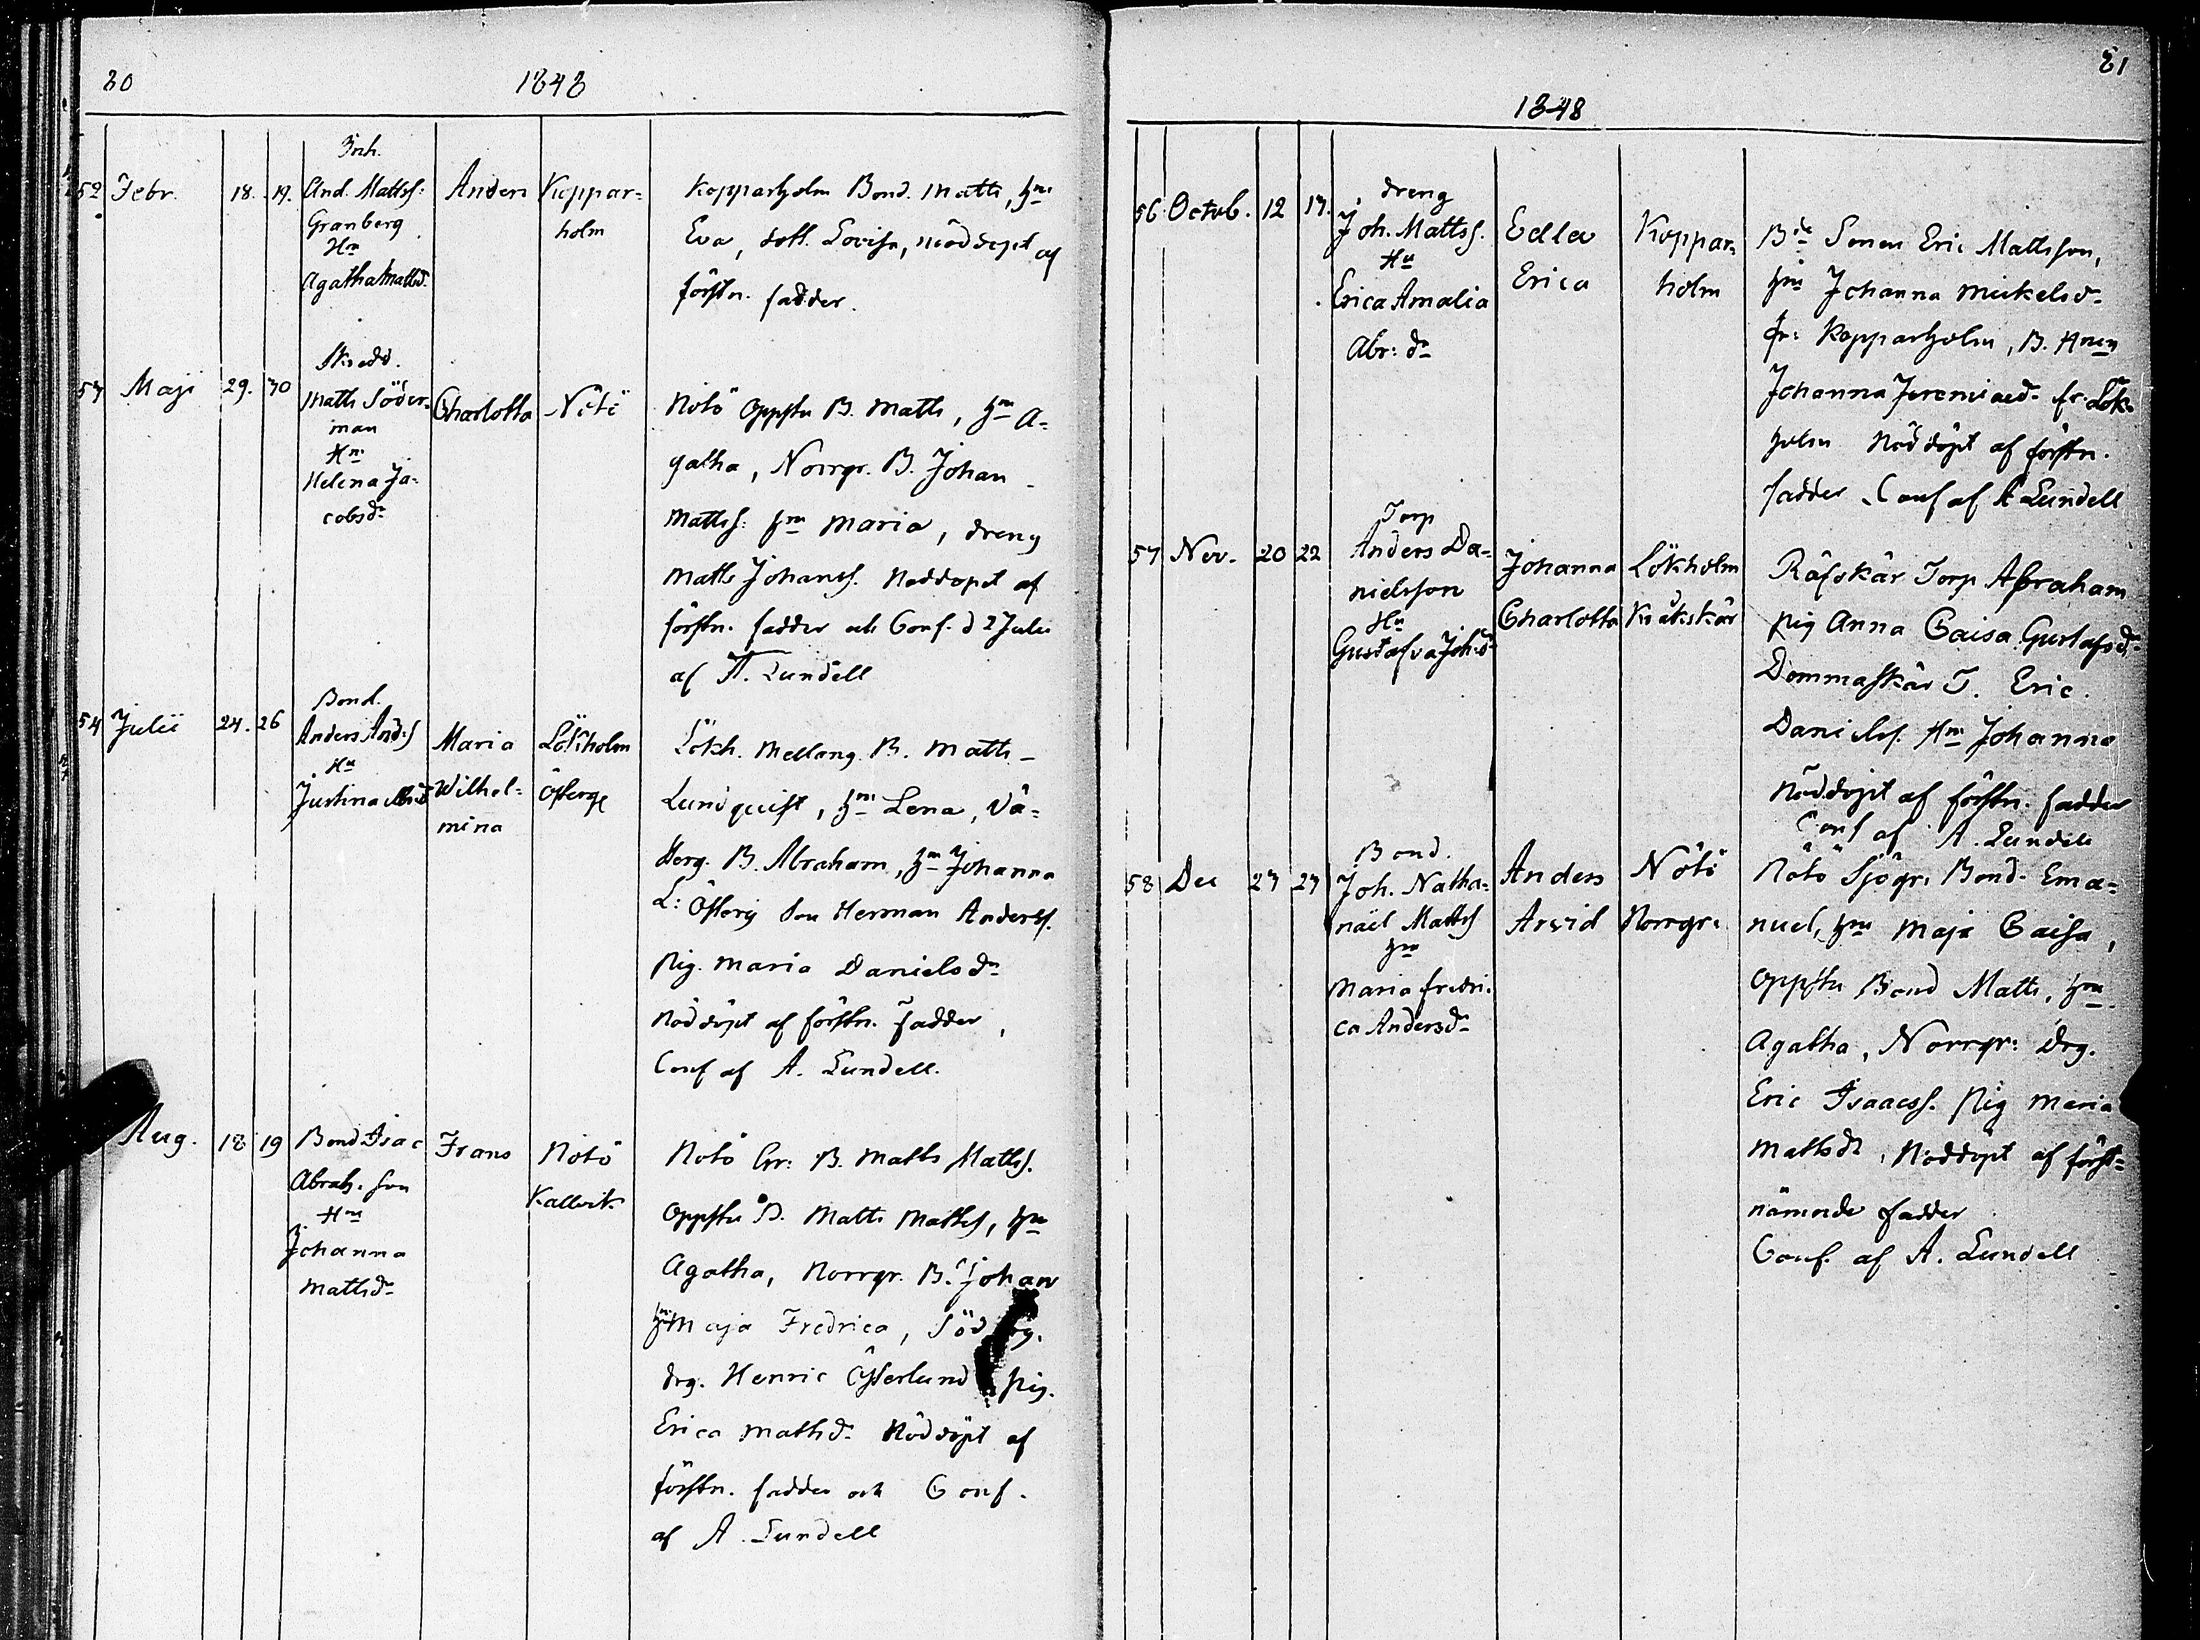 80
1848
52 Febr. 18. 19.
Inh.
And. Mattss:
Granberg
Hu
Agatha Mattsd.
Anders
Koppar-
holm
Kopparholm Bond. Matts, Hu
Eva, dott. Lovisa, nöddöpt af
förstn. fadder.
53 Maji 29. 30
Skrädd.
Matts Söder-
man
Hu
Helena Ja-
cobsdr
Charlotta
Nötö
Nötö Oppstu B. Matts, Hu A-
gatha, Norrgr. B. Johan
Mattss: Hu Maria, dreng
Matts Johanss. Nöddöpt af
förstn. fadder och Conf. d 2 Julii
af A. Lundell
54 Julii 24. 26
Bond.
Anders Ands
Hu
Justina
Maria
Wilhel-
mina
Lökholm
Österg
Lökh. Mellang. B. Matts
Lundquist, Hu Lena, Vä-
sterg. B. Abraham, Hu Johanna
L: Österg Son Herman Anderss.
Pig. Maria Danielsdr
Nöddöpt af förstn. fadder,
Conf af A. Lundell.
Aug. 18 19
Bond Isac
Abrah. son
Hu
Johanna
Mattsdr
Frans
Nötö
Kallvik
Nötö Gr: B. Matts Mattss.
Oppstu B. Matts Mattss, Hu
Agatha, Norrgr. B. Johan
Hu Maja Fredrica, Söderg.
drg. Henric Österlund Pig.
Erica Mattsdr Nöddöpt af
förstn. fadder och Conf.
af A. Lundell
81
1848
56 Octob. 12 13.
dreng
Joh. Mattss.
Hu
Erica Amalia
Abr: dr
Edla
Erica
Koppar-
holm
Bde Sonen Eric Mattsson,
Hu Johanna Mickelsdr
fr: Kopparholm, B. Hun
Johanna Jeremiaedr fr. Lök-
holm Nöddöpt af förstn.
fadder. Conf af A Lundell
57 Nov. 20 22
Torp
Anders Da-
nielsson
Hu
Gustafva Johsdr
Johanna
Charlotta
Lökholm
Kråkskär
Räfskär Torp Abraham
pig Anna Caisa Gustafsdr
Dommaskär T. Eric
Danielss. Hu Johanna
Nöddöpt af förstn. fadder
Conf af A. Lundell
58 Dec 23 27
Bond.
Joh. Natha-
nael Mattss
Hu
Maria Fredri-
ca Andersdr
Anders
Arvid
Nötö
Norrgr:
Nötö Sjögr: Bond. Ema-
nuel, Hu Maja Caisa,
Oppstu Bond Matts, Hu
Agatha, Norrgr: Drg.
Eric Isaacss. Pig Maria
Mattsdr, Nöddöpt af först-
nämnde fadder
Conf. af A. Lundell